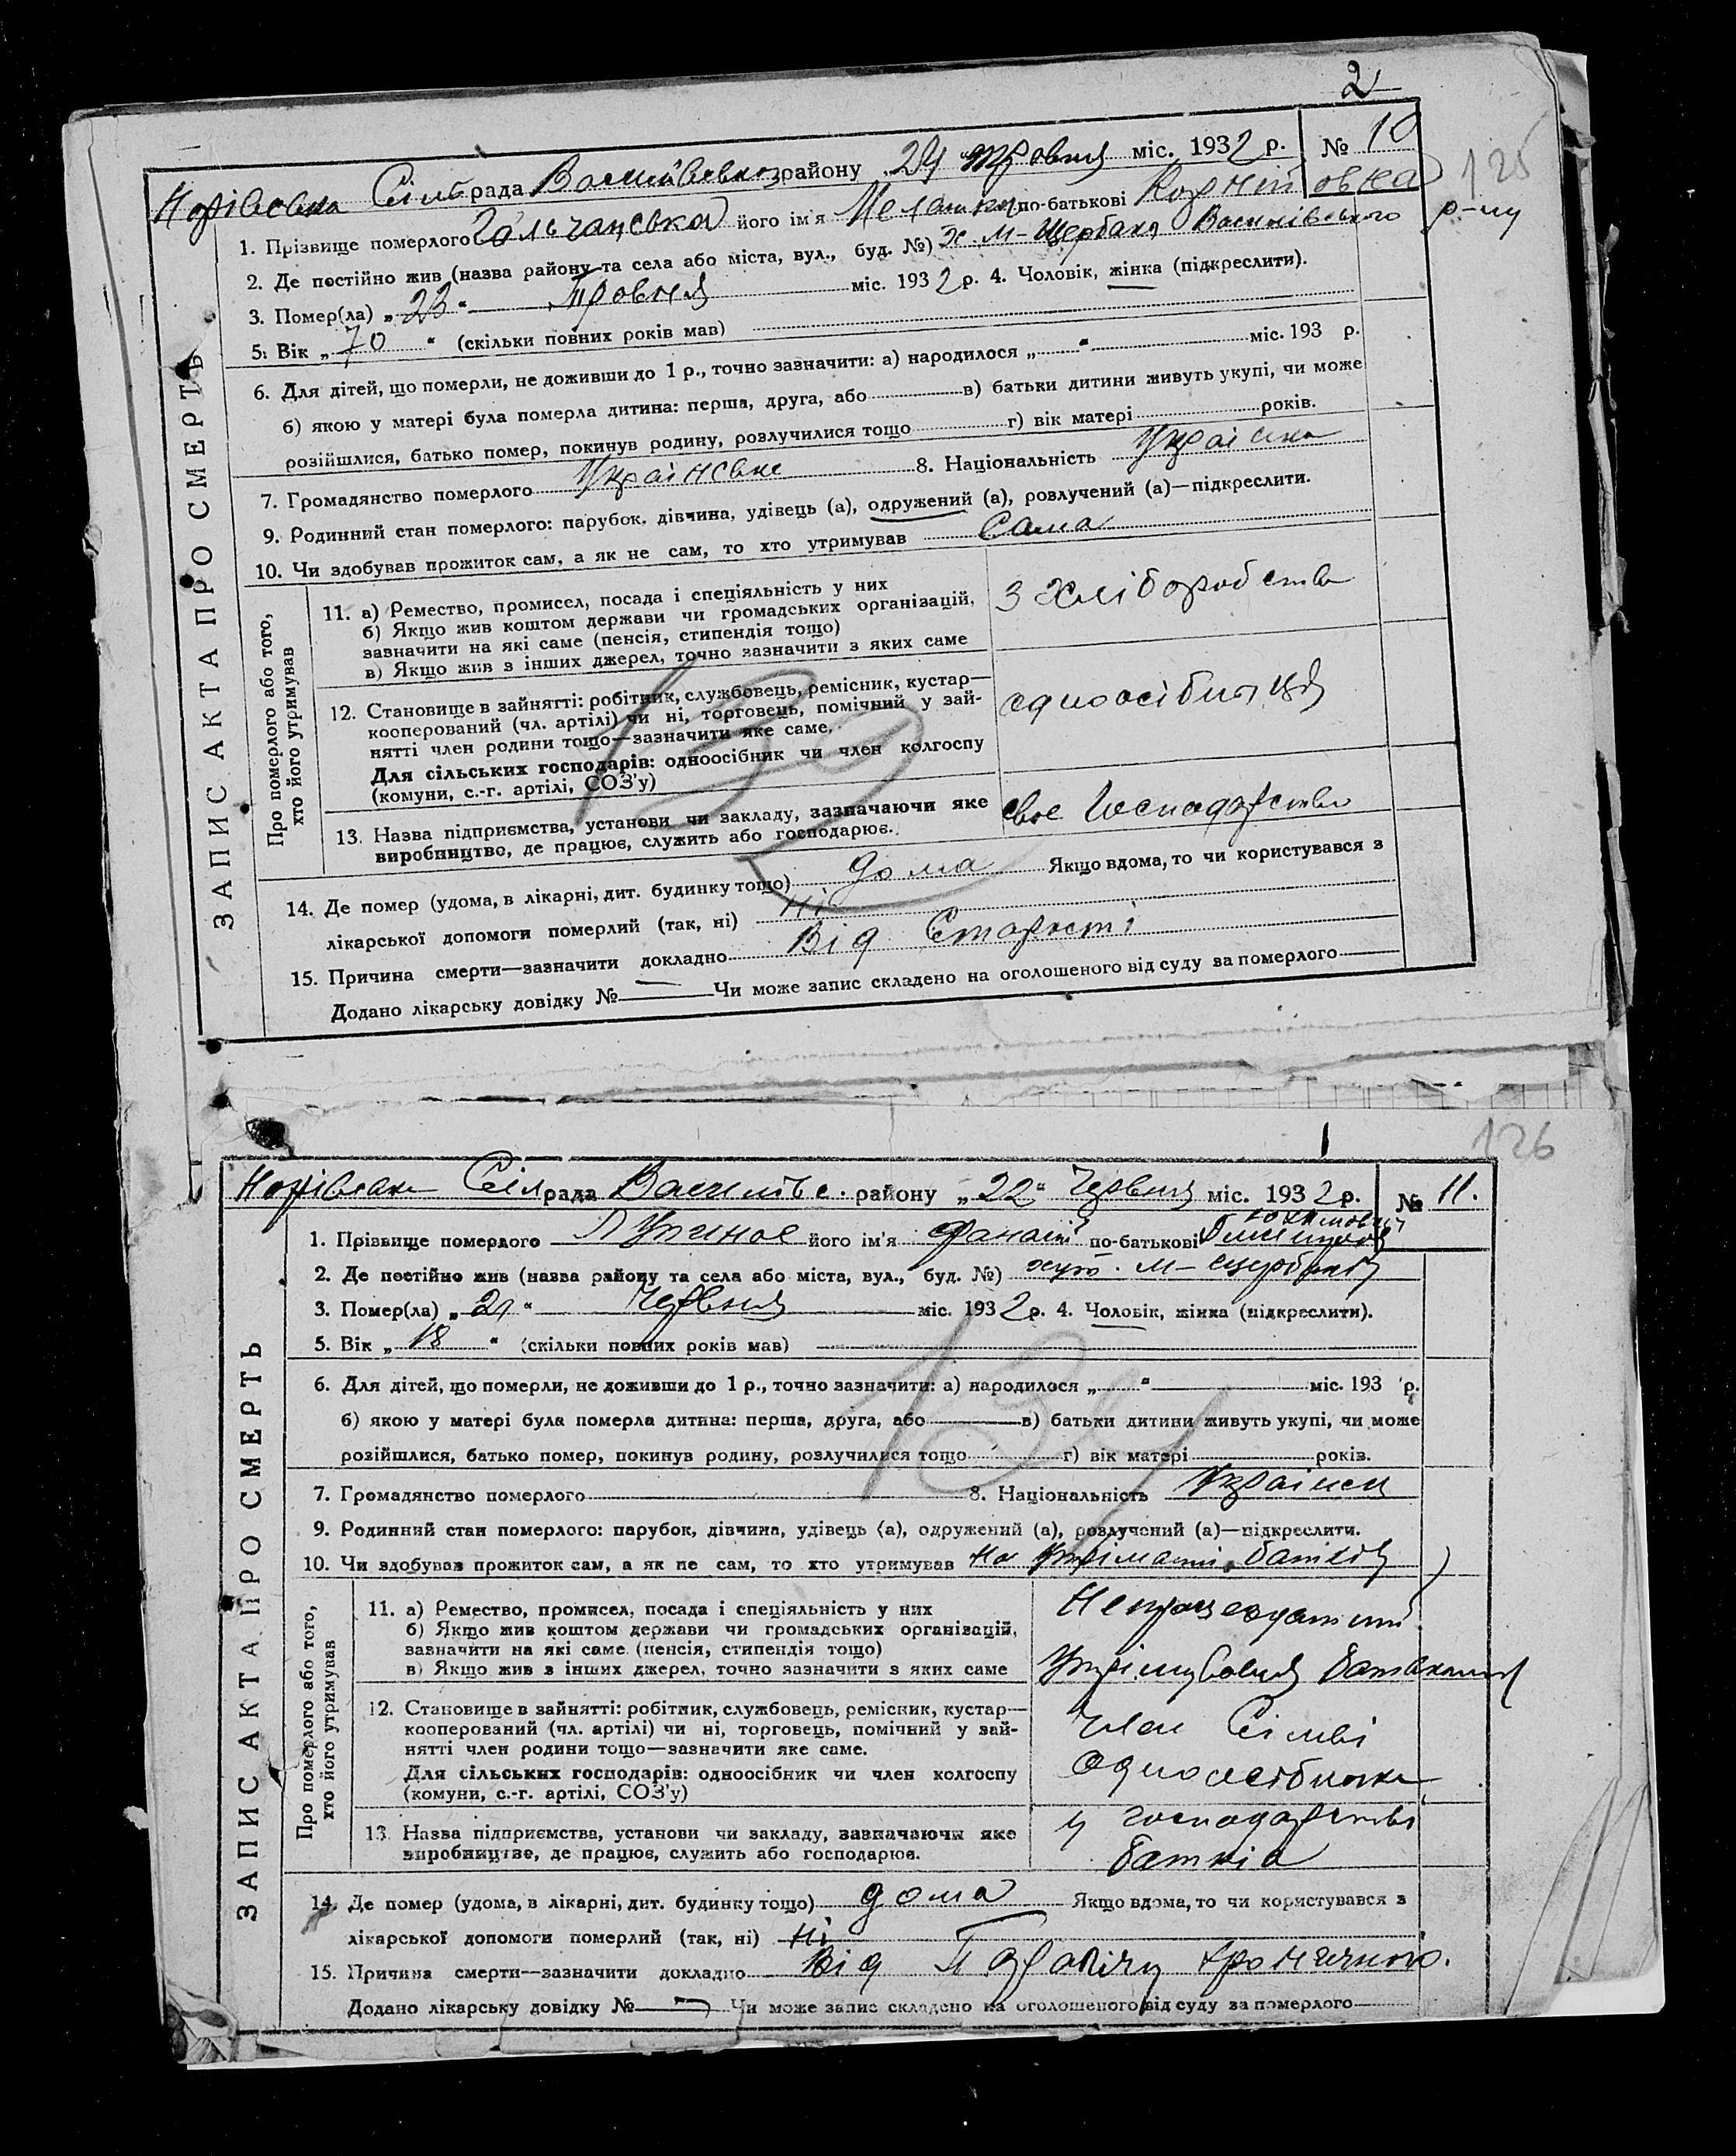 2
125
сільрада району „24" травня міс. 1932 р. № 10
1. Прізвище померлого Гальчанська його ім'я Мелашка по-батькові Корнійовна
2. Де постійно жив (назва району та села або міста, вул., буд. №) Х. М-Щербані Василівського р-ну
3. Помер(ла) „23" Травня міс. 1932 р. 4. Чоловік, жінка (підкреслити).
5. Вік „70" (скільки повних років мав)
6. Для дітей, що померли, не доживши до 1 р., точно зазначити: а) народилося „ " міс. 193 р.
б) якою у матері була померла дитина: перша, друга, або в) батьки дитини живуть укупі, чи може
розійшлися, батько помер, покинув родину, розлучилися тощо г) вік матері років.
7. Громадянство померлого Українське 8. Національність Українка
9. Родинний стан померлого: парубок, дівчина, удівець (а), одружений (а), розлучений (а)—підкреслити.
10. Чи здобував прожиток сам, а як не сам, то хто утримував Сама
ЗАПИС АКТА ПРО СМЕРТЬ
Про померлого або того,
хто його утримував
11. а) Ремество, промисел, посада і спеціяльність у них
б) Якщо жив коштом держави чи громадських організацій,
зазначити на які саме (пенсія, стипендія тощо)
в) Якщо жив з інших джерел, точно зазначити з яких саме
з хліборобства
12. Становище в зайнятті: робітник, службовець, ремісник, кустар—
кооперований (чл. артілі) чи ні, торговець, помічний у зай-
нятті член родини тощо—зазначити яке саме.
Для сільських господарів: одноосібник чи член колгоспу
(комуни, с.-г. артілі, СОЗ'у)
одноосібниця
13. Назва підприємства, установи чи закладу, зазначаючи яке
виробництво, де працює, служить або господарює.
своє Господарство
14. Де помер (удома, в лікарні, дит. будинку тощо) дома Якщо вдома, то чи користувався з
лікарської допомоги померлий (так, ні) ні
15. Причина смерти—зазначити докладно Від Старості
Додано лікарську довідку № — Чи може запис складено на оголошеного від суду за померлого
126
рада району „22" Червня міс. 1932 р. № 11.
1. Прізвище померлого його ім'я по-батькові
2. Де постійно жив (назва району та села або міста, вул., буд. №) хут. М-Щербані
3. Помер(ла) „21" Червня міс. 1932 р. 4. Чоловік, жінка (підкреслити).
5. Вік „18" (скільки повних років мав)
6. Для дітей, що померли, не доживши до 1 р., точно зазначити: а) народилося „ " міс. 193 р.
б) якою у матері була померла дитина: перша, друга, або в) батьки дитини живуть укупі, чи може
розійшлися, батько помер, покинув родину, розлучилися тощо г) вік матері років.
7. Громадянство померлого 8. Національність Українец
9. Родинний стан померлого: парубок, дівчина, удівець (а), одружений (а), розлучений (а)—підкреслити.
10. Чи здобував прожиток сам, а як не сам, то хто утримував на утріманні батків
ЗАПИС АКТА ПРО СМЕРТЬ
Про померлого або того,
хто його утримував
11. а) Ремество, промисел, посада і спеціяльність у них
б) Якщо жив коштом держави чи громадських організацій,
зазначити на які саме (пенсія, стипендія тощо)
в) Якщо жив з інших джерел, точно зазначити з яких саме
Непрацездатний
12. Становище в зайнятті: робітник, службовець, ремісник, кустар—
кооперований (чл. артілі) чи ні, торговець, помічний у зай-
нятті член родини тощо—зазначити яке саме.
Для сільських господарів: одноосібник чи член колгоспу
(комуни, с.-г. артілі, СОЗ'у)
член Сімьі
одноосібника
13. Назва підприємства, установи чи закладу, зазначаючи яке
виробництво, де працює, служить або господарює.
у господарстві
батька
14. Де помер (удома, в лікарні, дит. будинку тощо) дома Якщо вдома, то чи користувався з
лікарської допомоги померлий (так, ні) ні
15. Причина смерти—зазначити докладно Від Паралічу хронічного.
Додано лікарську довідку № — Чи може запис складено на оголошеного від суду за померлого